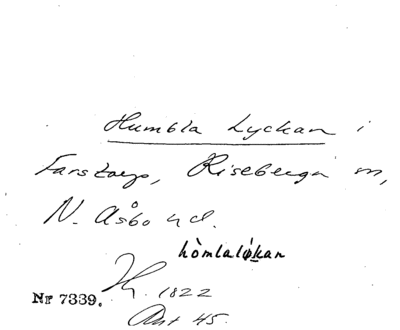 Humbla Lyckan i
Farstorp, Riseberga sn,
N. Åsbo hd.
hòmlalǫ́kan
Nr 7339. 1822
Akt 45.